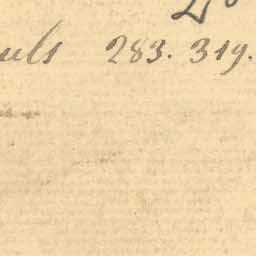 uls 283. 319.